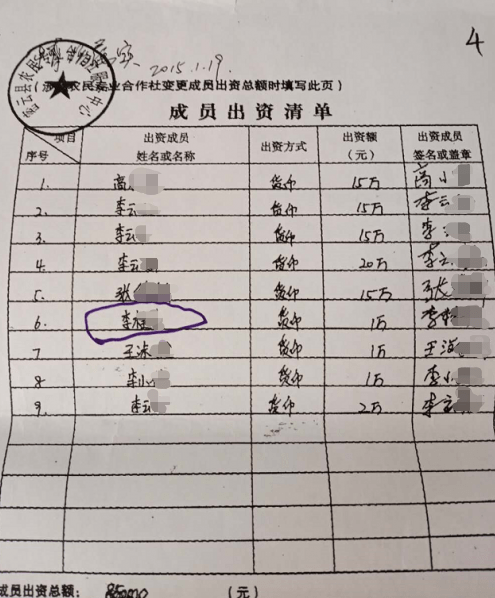 4
2015.1.19
农民专业合作社变更成员出资总额时填写此页）
成员出资清单
项目
序号
出资成员
姓名或名称
出资方式
出资额
（元）
出资成员
签名或盖章
1. 高 货币 15万 高小
2. 李云 货币 15万 李云
3. 李云 货币 15万 李
4. 李云 货币 20万 李云
5. 张 货币 15万 张
6. 李桂 货币 1万 李桂
7 王 货币 1万 王
8 李小 货币 1万 李小
9. 李云 货币 2万 李
成员出资总额： （元）